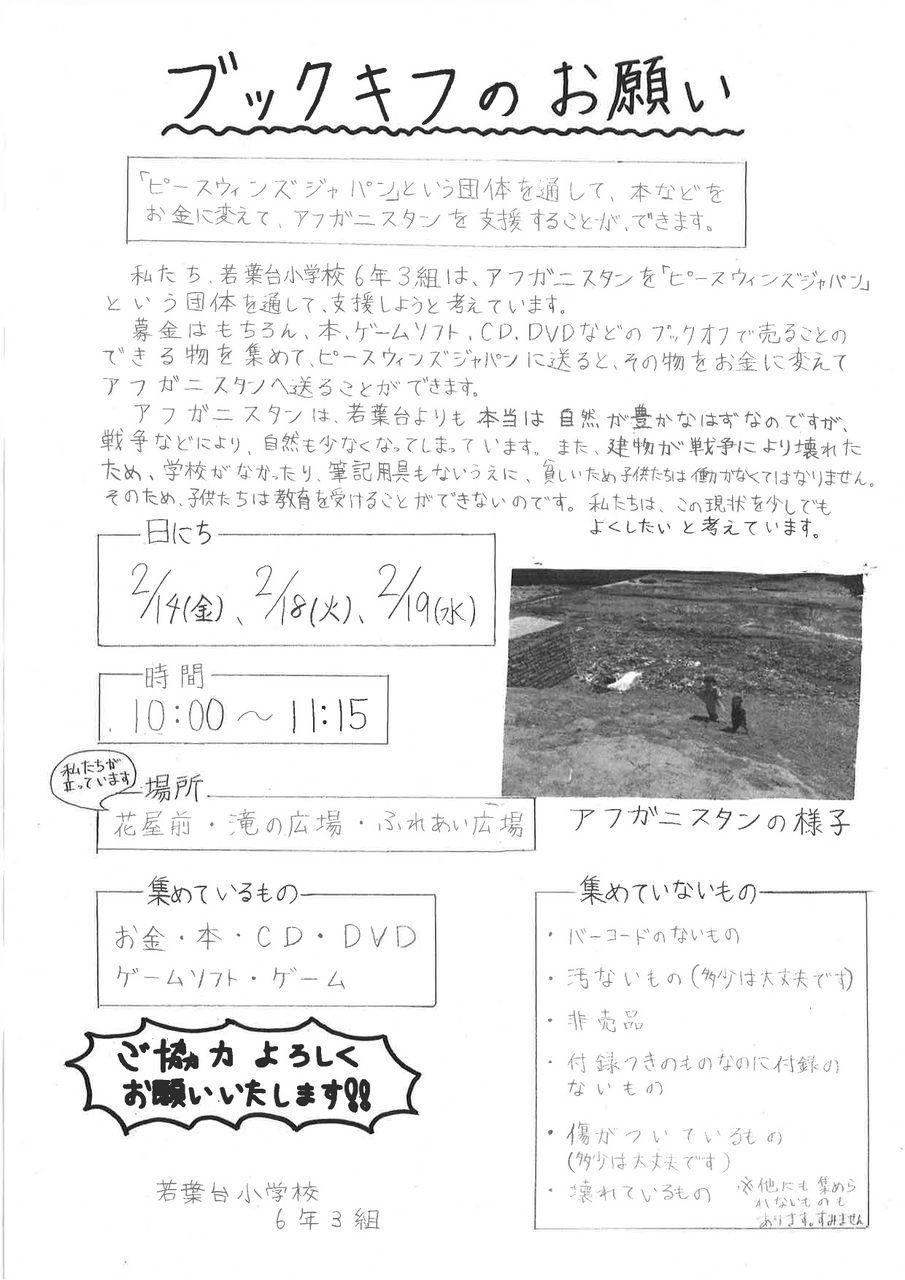 ブックキフのお願い
「ピースウィンズジャパン」という団体を通して、本などを
お金に変えて、アフガニスタンを支援することが、できます。
私たち、若葉台小学校6年3組は、アフガニスタンを「ピースウィンズジャパン」
という団体を通して、支援しようと考えています。
募金はもちろん、本、ゲームソフト、CD、DVDなどのブックオフで売ることの
できる物を集めて、ピースウィンズジャパンに送ると、その物をお金に変えて
アフガニスタンへ送ることができます。
アフガニスタンは、若葉台よりも本当は自然が豊かなはずなのですが、
戦争などにより、自然も少なくなってしまっています。また、建物が戦争により壊れた
ため、学校がなかったり、筆記用具もないうえに、貧しいため子供たちは働かなくてはなりません。
そのため、子供たちは教育を受けることができないのです。私たちは、この現状を少しでも
よくしたいと考えています。
日にち
2/14(金)、2/18(火)、2/19(水)
時間
10:00〜11:15
私たちが
立っています
場所
花屋前・滝の広場・ふれあい広場
アフガニスタンの様子
集めているもの
お金・本・CD・DVD
ゲームソフト・ゲーム
集めていないもの
・バーコードのないもの
・汚ないもの(多少は大丈夫です)
・非売品
・付録つきのものなのに付録の
ないもの
・傷がついているもの
(多少は大丈夫です)
・壊れているもの
※他にも集めら
れないものも
あります。すみません
ご協力よろしく
お願いいたします!!
若葉台小学校
6年3組